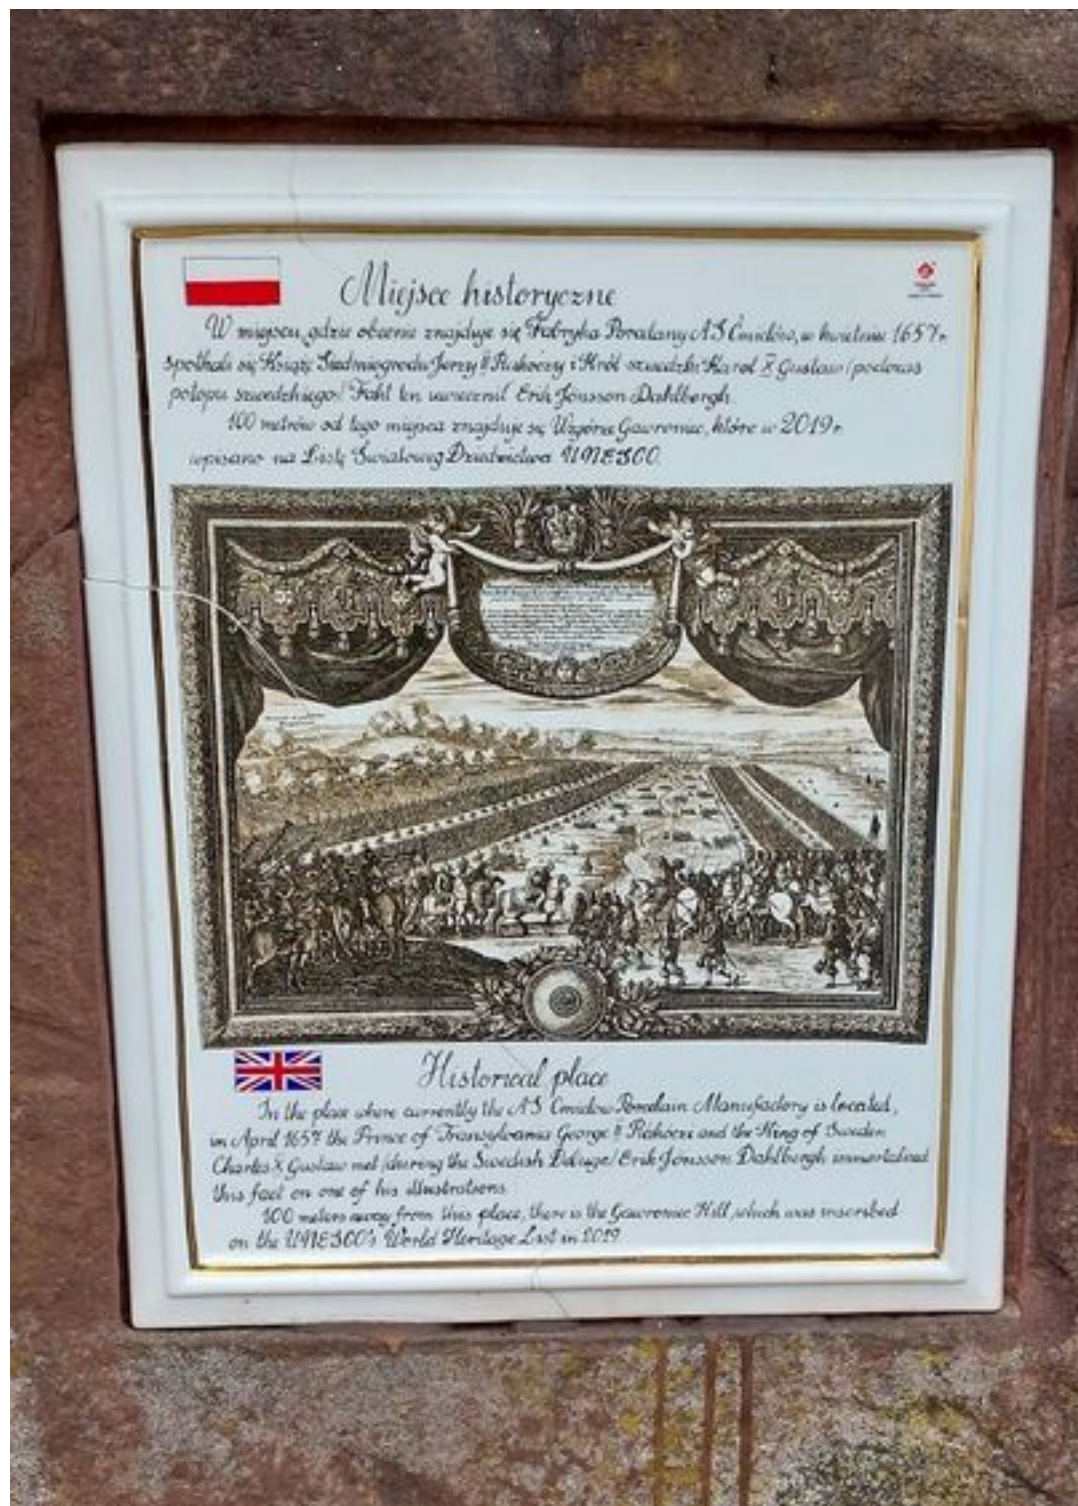 Miejsce historyczne
W miejscu, gdzie obecnie znajduje się Fabryka Porcelany AS Ćmielów, w kwietniu 1657 r.
spotkali się Książę Siedmiogrodu Jerzy II Rakoczy i Król szwedzki Karol X Gustaw /podczas
potopu szwedzkiego/. Fakt ten uwiecznił Erik Jönsson Dahlbergh.
100 metrów od tego miejsca znajduje się Wzgórze Gawroniec, które w 2019 r.
wpisano na Listę Światowego Dziedzictwa UNESCO.
Historical place
In the place where currently the AS Cmielow Porcelain Manufactory is located,
in April 1657 the Prince of Transylvania George II Rakoczi and the King of Sweden
Charles X Gustaw met /during the Swedish Deluge/ Erik Jönsson Dahlbergh immortalised
this fact on one of his illustrations.
100 meters away from this place, there is the Gawroniec Hill, which was inscribed
on the UNESCO's World Heritage List in 2019